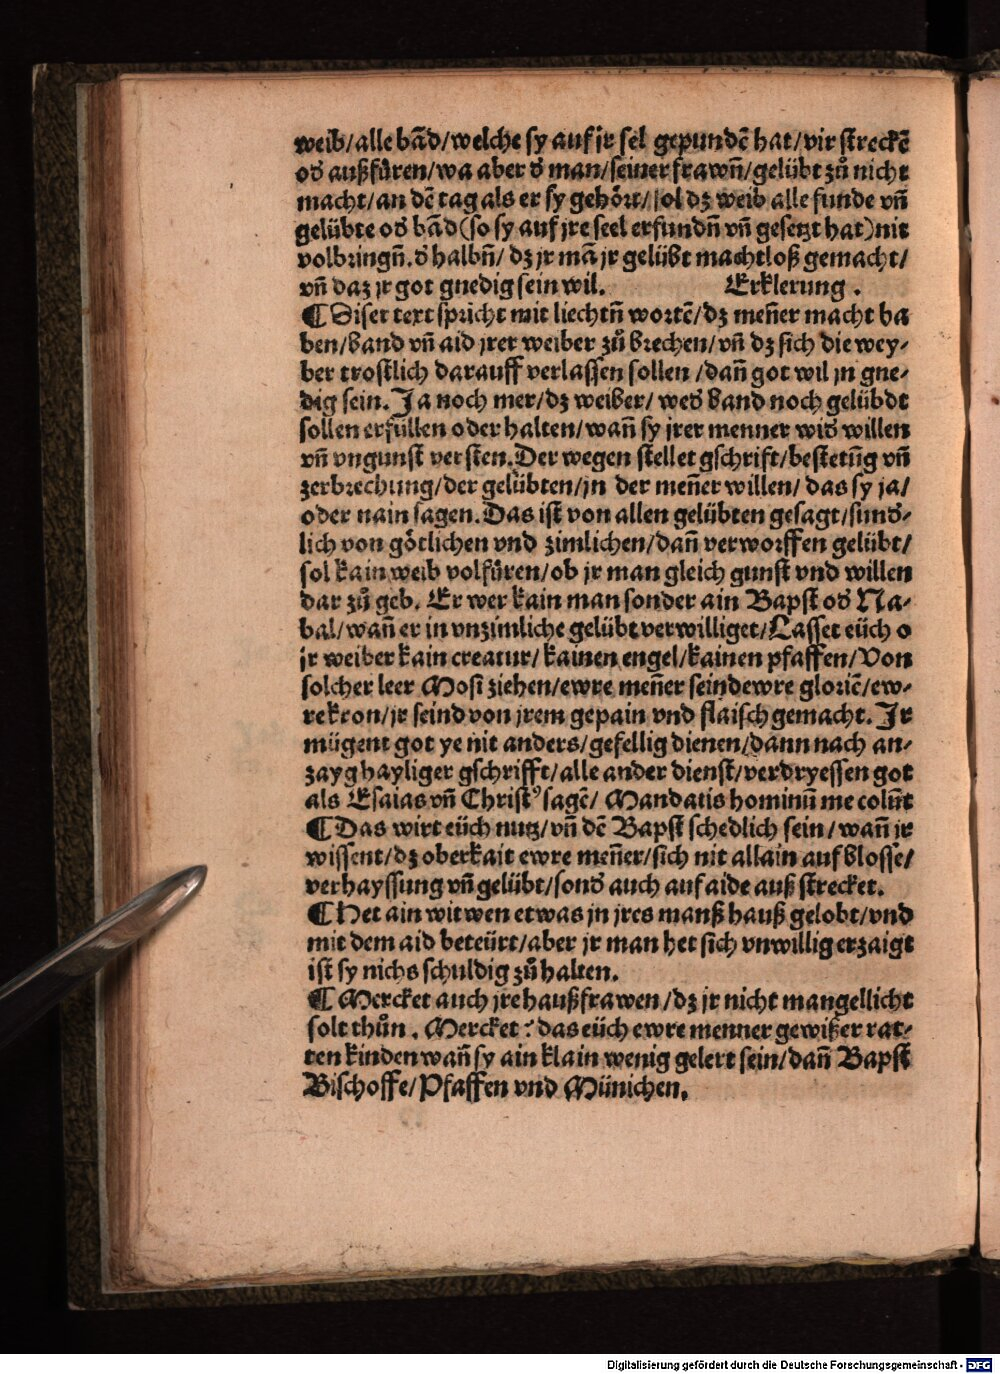 weib/alle bād/welche sy auf jr sel gepundē hat/vir streckē
od̕ außfůren/wa aber d̕ man/seiner frawn̄/gelübt zů nicht
macht/an dē tag als er sy gehört/sol dz weib alle funde vn̄
gelübte od̕ bād(so sy auf jre seel erfundn̄ vn̄ gesetzt hat)nit
volbringn̄. d̕ halbn̄/ dz jr mā jr gelübt machtloß gemacht/
vn̄ daz jr got gnedig sein wil. Erklerung .
¶ Diser text spricht mit liechtn̄ wortē/dz men̄er macht ha
ben/band vn̄ aid jrer weiber zů brechen/vn̄ dz sich die wey⸗
ber trostlich darauff verlassen sollen /dan̄ got wil jn gne⸗
dig sein. Ja noch mer/dz weiber/ wed̕ band noch gelübdt
sollen erfüllen oder halten/wan̄ sy jrer menner wid̕ willen
vn̄ vngunst versten. Der wegen stellet gschrift/bestetūg vn̄
zerbrechung/der gelübten/jn der men̄er willen/ das sy ja/
oder nain sagen. Das ist von allen gelübten gesagt/sund̕⸗
lich von götlichen vnd zimlichen/dan̄ verworffen gelübt/
sol kain weib volfüren/ob jr man gleich gunst vnd willen
dar zů geb. Er wer kain man sonder ain Bapst od̕ Na⸗
bal/wan̄ er in vnzimliche gelübt verwilliget/Lasset eüch o
jr weiber kain creatur/kainen engel/kainen pfaffen/Von
solcher leer Mosi ziehen/ewre men̄er seind ewre gloriē/ew⸗
re kron/jr seind von jrem gepain vnd flaisch gemacht. Jr
mügent got ye nit anders/gefellig dienen/dann nach an⸗
zayg hayliger gschrifft/alle ander dienst/verdryessen got
als Esaias vn̄ Christ⁹ sagē/ Mandatis hominū me colūt
¶ Das wirt eüch nutz/vn̄ dē Bapst schedlich sein/wan̄ jr
wissent/dz oberkait ewre men̄er/sich nit allain auf blosse/
verhayssung vn̄ gelübt/sond̕ auch auf aide auß strecket.
¶ Het ain witwen etwas jn jres manß hauß gelobt/vnd
mit dem aid beteürt/aber jr man het sich vnwillig erzaigt
ist sy nichs schuldig zů halten.
¶ Mercket auch jre haußfrawen/dz jr nicht mangellicht
solt thůn . Mercket : das eüch ewre menner gewißer rat⸗
ten kinden wan̄ sy ain klain wenig gelert sein/dan̄ Bapst
Bischoffe/Pfaffen vnd Münichen.
Digitalisierung gefördert durch die Deutsche Forschungsgemeinschaft - DFG